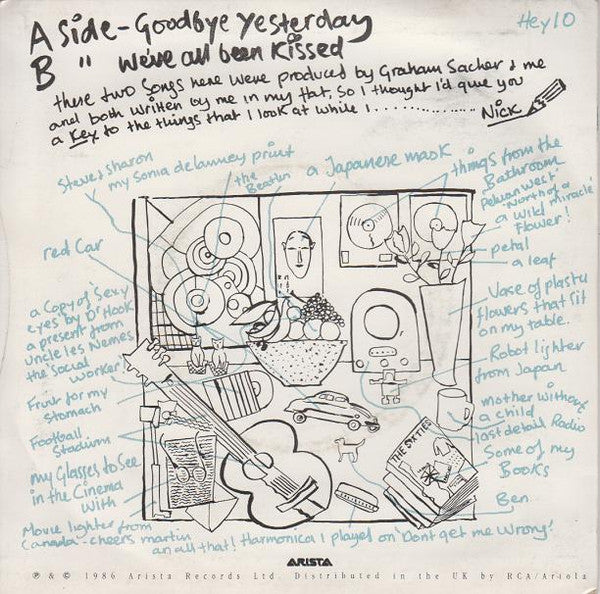 A Side - Goodbye Yesterday
B " We've all been Kissed
Hey 10
these two songs here were produced by Graham Sacher & me
and both written by me in my flat, so I thought I'd give you
a Key to the things that I look at while I..................
Nick
Steve & Sharon
my Sonia delauney print
the Beatles
a Japanese mask
things from the
Bathroom
Pekuan west
'North of a
miracle'
a wild
flower!
petal
a leaf
red Car
a copy of 'Sexy
eyes' by Dr Hook
a present from
uncle les Nemes
the Social
worker!
Fruit for my
stomach
Football
Stadium
my Glasses to See
in the Cinema
with
Movie lighter from
Canada - cheers martin
an all that!
Harmonica I played on 'Dont get me Wrong'
Vase of plastic
flowers that sit
on my table.
Robot lighter
from Japan
mother without
a child
lost detail Radio
Some of my
Books
Ben
THE SIXTIES
ARISTA
℗ & © 1986 Arista Records Ltd. Distributed in the UK by RCA/Ariola